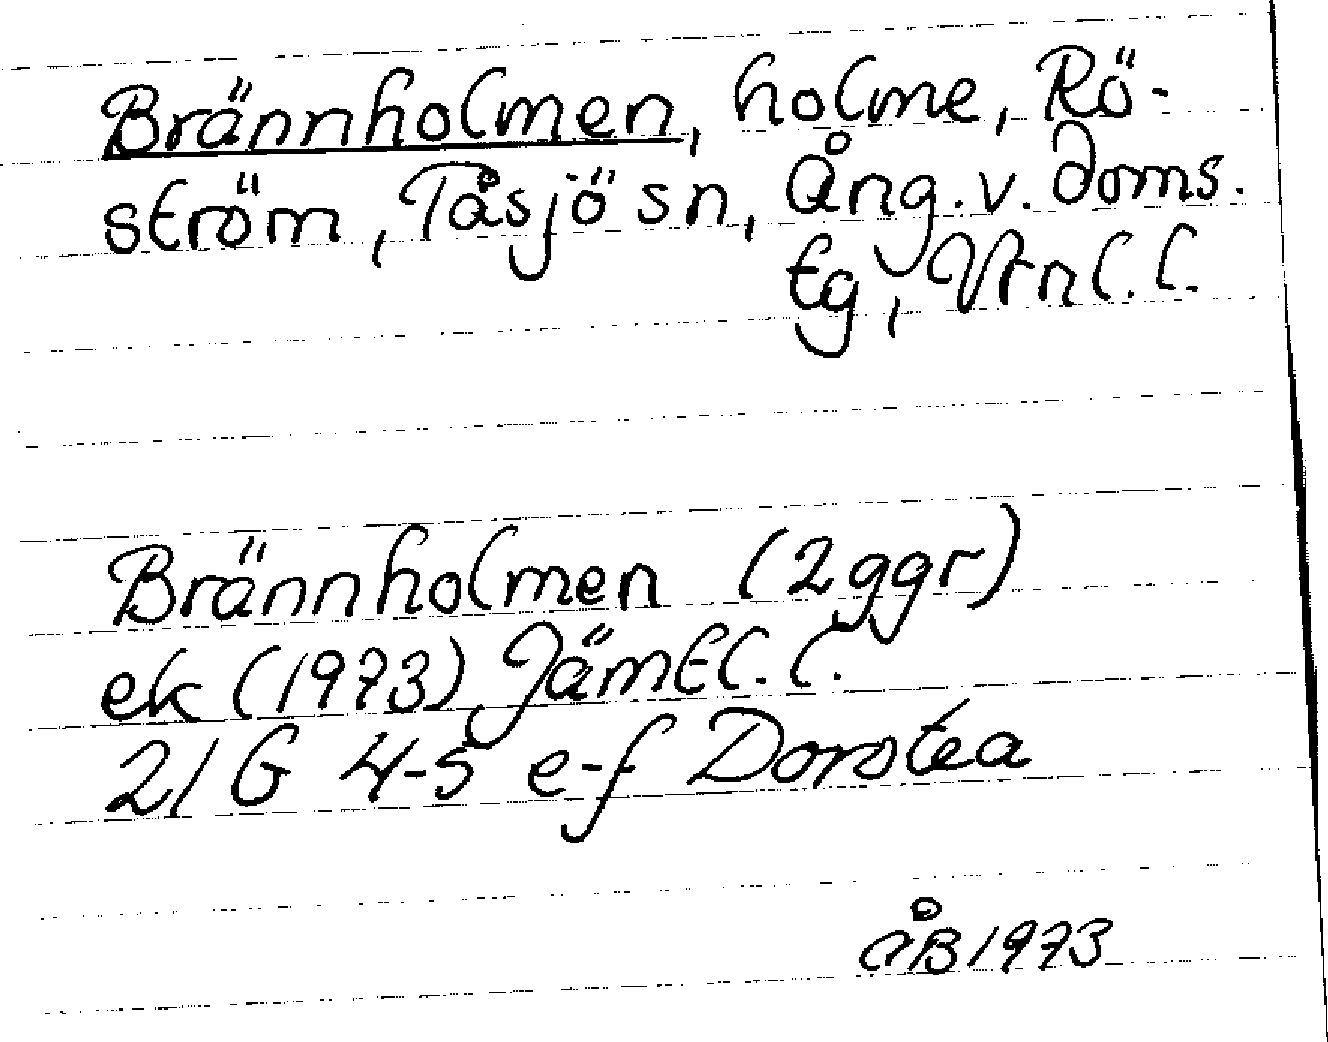 Brännholmen, holme, Rö-
ström, Tåsjö sn, Ång.v. doms.
tg, Vrnl.l.
Brännholmen (2ggr)
ek (1973) Jämtl.l.
21 G 4-5 e-f Dorotea
ÅB 1973